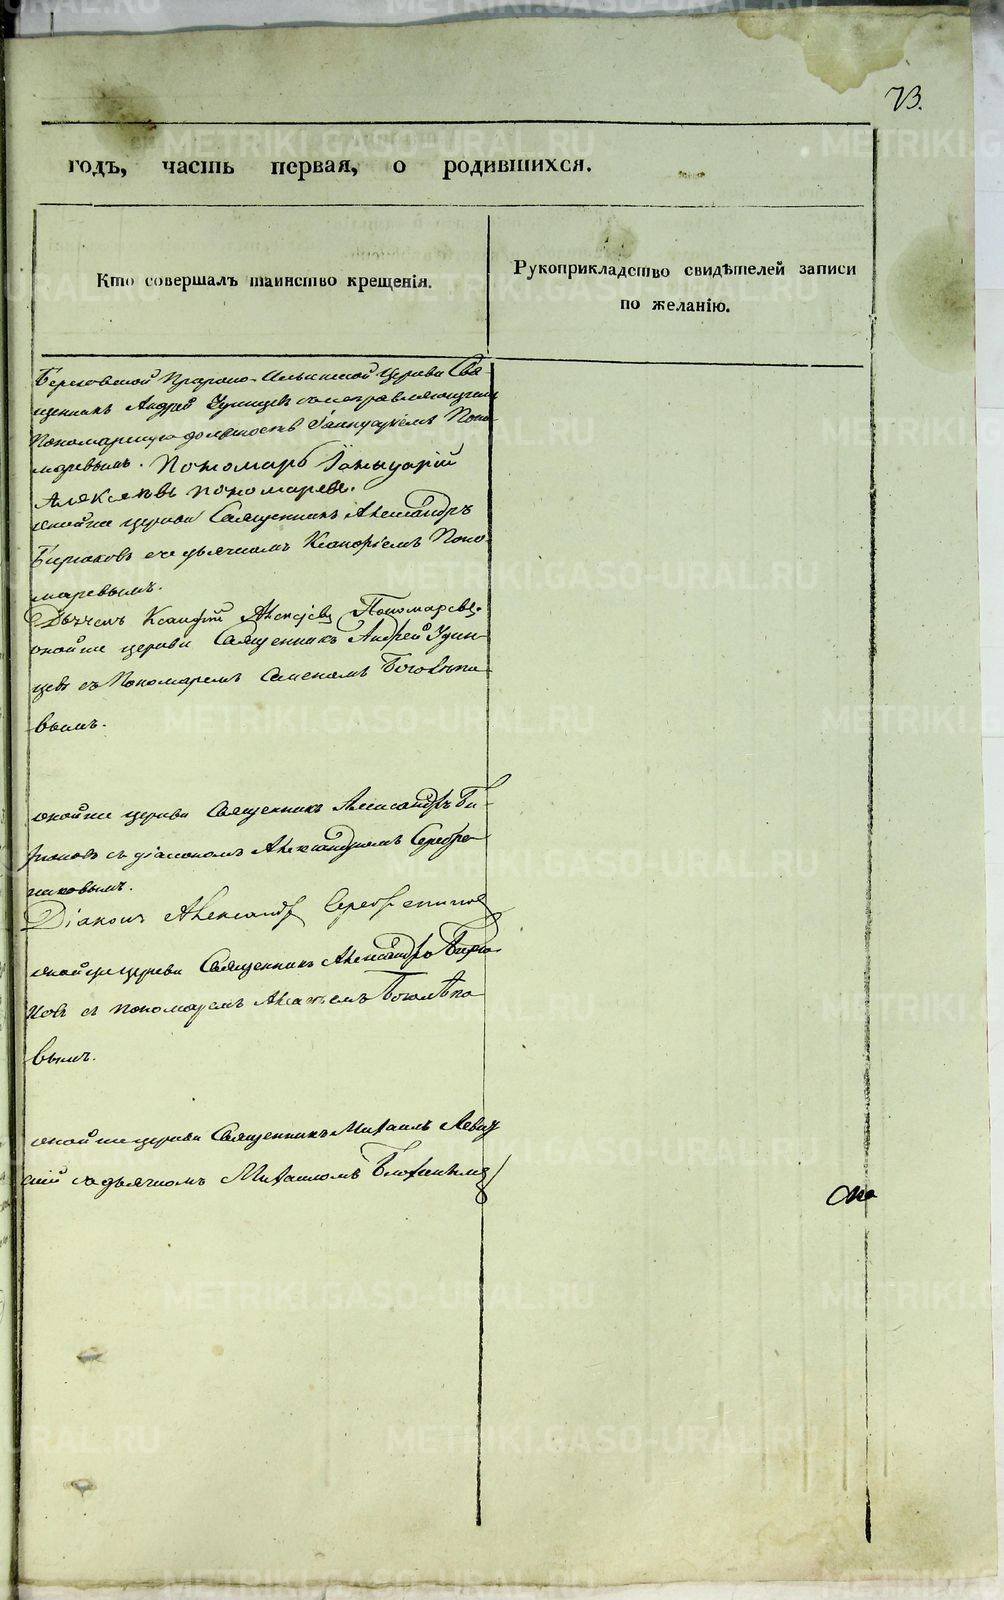 73.
годъ, часть первая, о родившихся.
Кто совершалъ таинство крещенія.
Рукоприкладство свидѣтелей записи
по желанію.
Церкви Свя-
щенникъ Андрей Удинцевъ
Пономарскую должность Іаннуаріемъ Поно-
маревымъ. Пономарь Іаннуарій
Алексѣевъ Пономаревъ.
оной же церкви Священникъ Александръ
Бирюковъ съ дьячкомъ Ксанфіемъ Поно-
маревымъ.
Дьячекъ Ксанфій Алексѣевъ Пономаревъ.
оной же церкви Священникъ Андрей Удин-
цевъ съ Пономаремъ Боголѣпо-
вымъ.
оной же церкви Священникъ Александръ Би-
рюковъ съ діакономъ Александромъ Серебре-
никовымъ.
Діаконъ Александръ Серебрениковъ
оной же церкви Священникъ Александръ Бирю-
ковъ съ пономаремъ Боголѣпо-
вымъ.
оной же церкви Священникъ Михаилъ Левиц-
кій съ дьячкомъ Михаиломъ
METRIKI.GASO-URAL.RU